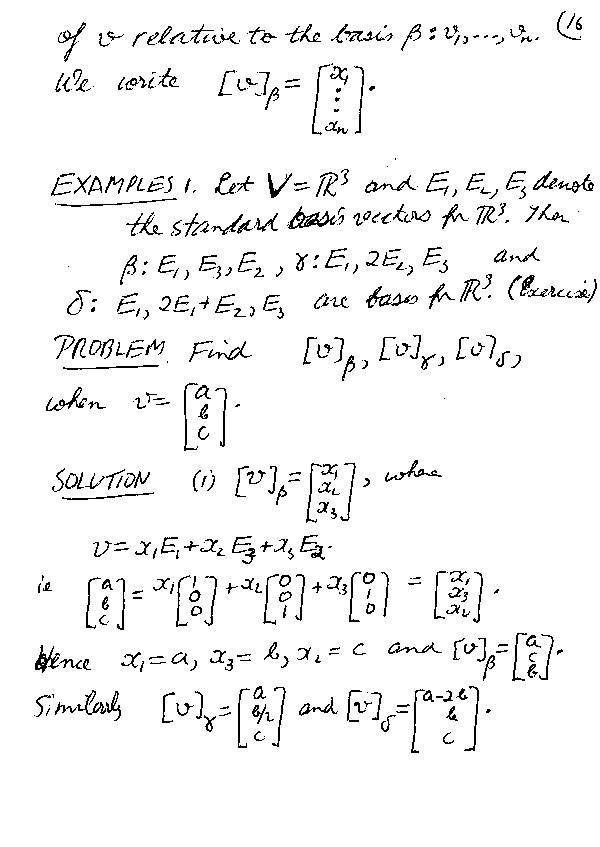 of v relative to the basis β: v₁, ..., vₙ. (16
We write [v]_β = [x₁ ⋮ xₙ].
EXAMPLES 1. Let V = ℝ³ and E₁, E₂, E₃ denote
the standard basis vectors for ℝ³. Then
β: E₁, E₃, E₂, γ: E₁, 2E₂, E₃ and
δ: E₁, 2E₁+E₂, E₃ are bases for ℝ³. (Exercise)
PROBLEM Find [v]_β, [v]_γ, [v]_δ,
when v = [a b c].
SOLUTION (i) [v]_β = [x₁ x₂ x₃], where
v = x₁E₁+x₂E₃+x₃E₂.
ie [a b c] = x₁[1 0 0] + x₂[0 0 1] + x₃[0 1 0] = [x₁ x₃ x₂].
Hence x₁ = a, x₃ = b, x₂ = c and [v]_β = [a c b].
Similarly [v]_γ = [a b/2 c] and [v]_δ = [a-2b b c].